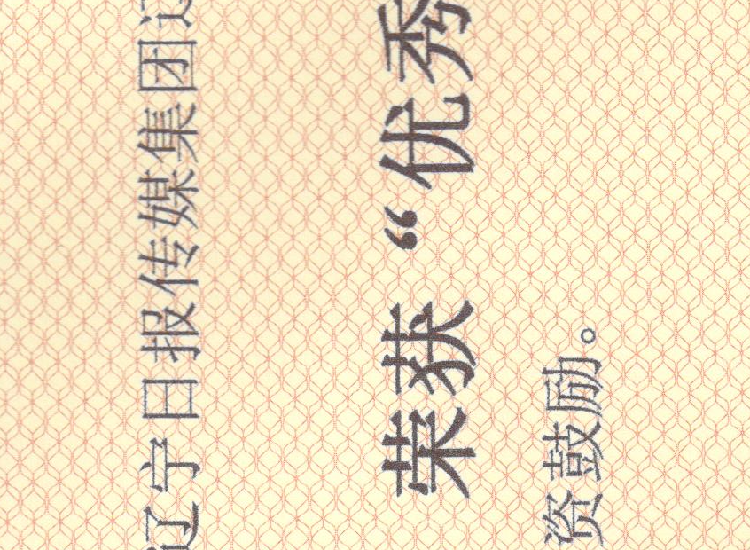 辽宁日报传媒集团辽
荣获“优秀
资鼓励。